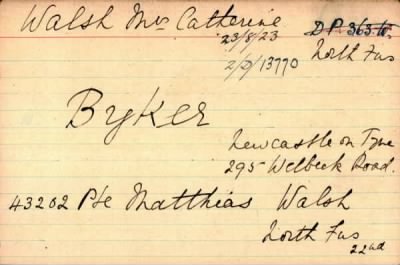 Walsh Mrs Catherine D.P. 363.W.
23/8/23 North Fus
2/D/13770
Byker
Newcastle on Tyne
295 Welbeck Road.
43202 Pte Matthias Walsh
North Fus
22nd